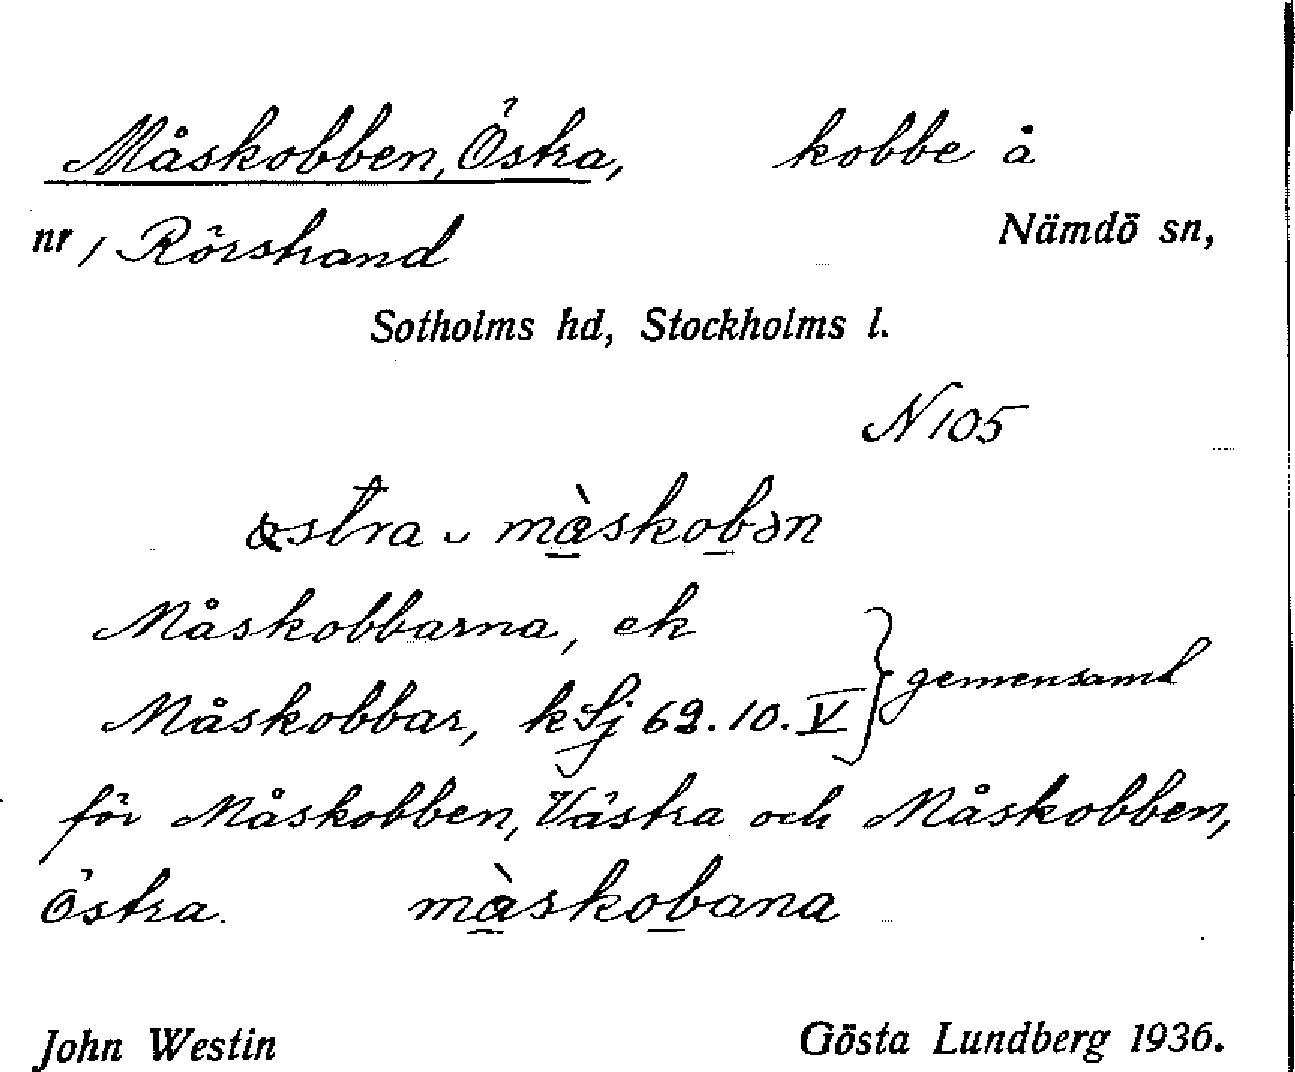 Måskobben, Östra, kobbe å
nr 1 Rörstrand Nämdö sn,
Sotholms hd, Stockholms l.
N 105
østra ᴗ mà̲skob̲ən
Måskobbarna, ek
Måskobbar, kSj 69.10.V } gemensamt
för Måskobben, Västra och Måskobben,
Östra. mà̲skob̲ana
John Westin Gösta Lundberg 1936.